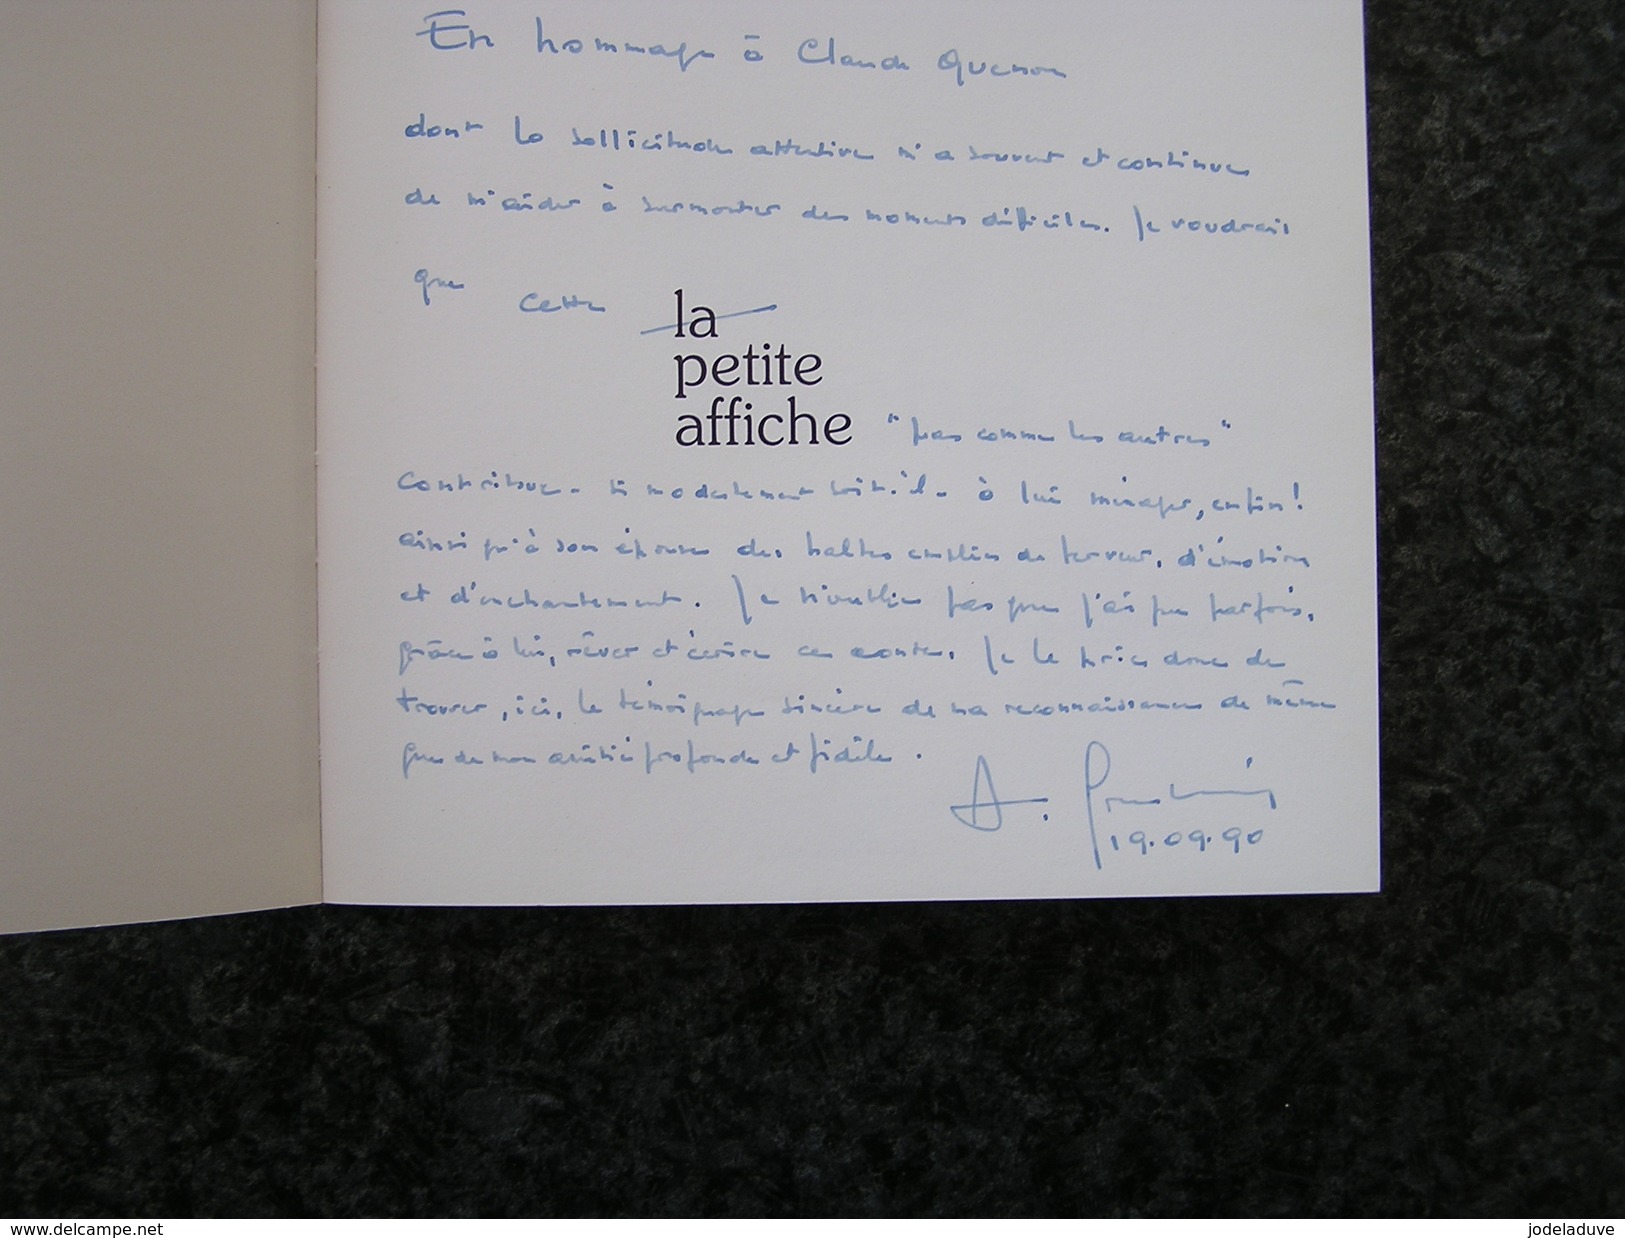 En hommage à Claude Quenon
dont la sollicitude attentive m'a souvent et continue
de m'aider à surmonter des moments difficiles. Je voudrais
que cette
la
petite
affiche "pas comme les autres"
contribue - si modestement soit-il - à lui ménager, enfin!
ainsi qu'à son épouse des haltes emplies de ferveur, d'émotion
et d'enchantement. Je n'oublie pas que j'ai pu parfois,
grâce à lui, rêver et écrire ce conte. Je le prie donc de
trouver, ici, le témoignage sincère de ma reconnaissance de même
que de mon amitié profonde et fidèle.
A.
19.09.90
www.delcampe.net
jodeladuve